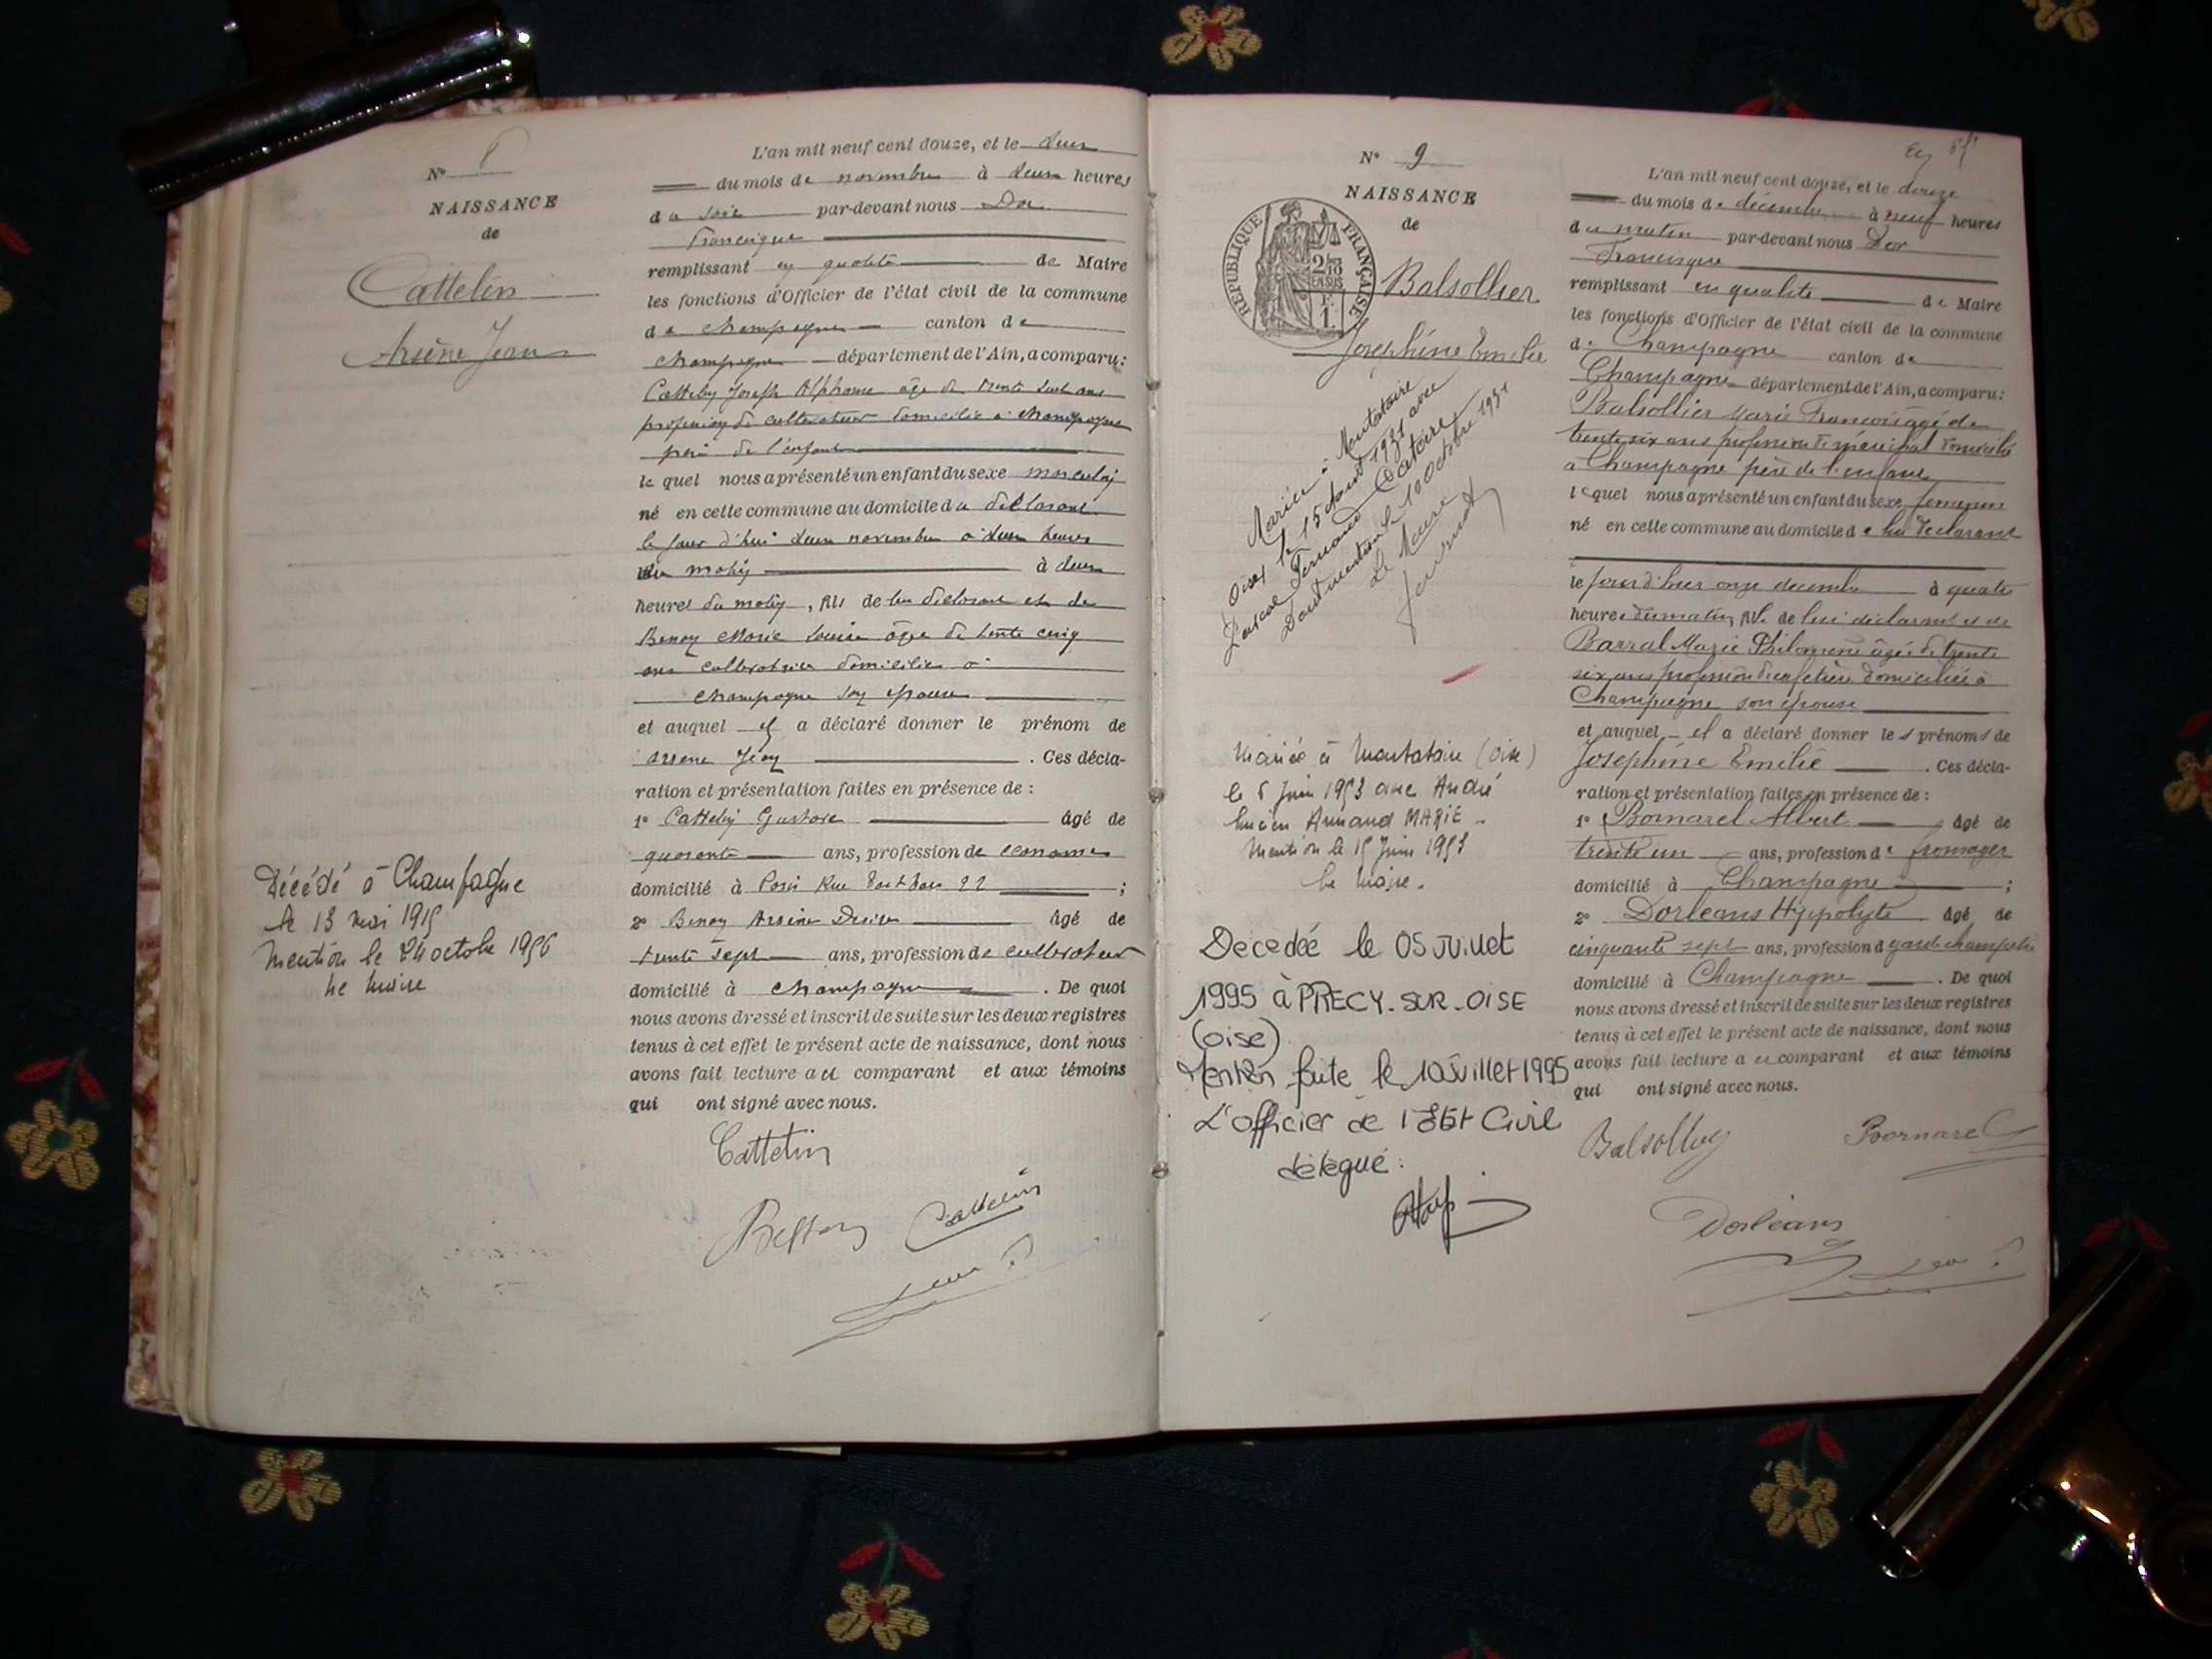 N° 8
NAISSANCE
de
Cattelin
Arsène Jean
Décédé à Champagne
le 13 mai 1915
Mention le 24 octobre 1956
Le Maire
L'an mil neuf cent douze, et le deux
du mois de novembre à deux heures
du soir par-devant nous
Francisque
remplissant en qualité de Maire
les fonctions d'Officier de l'état civil de la commune
de Champagne canton de
Champagne département de l'Ain, a comparu:
Cattelin Joseph Alphonse âgé de trente ans
profession de cultivateur domicilié à Champagne
père de l'enfant
lequel nous a présenté un enfant du sexe masculin
né en cette commune au domicile du déclarant
le jour d'hui deux novembre à deux heures
du matin à deux
heures du matin, fils de lui déclarant et de
Benoy Marie Louise âgée de trente cinq
ans cultivatrice domiciliée à
Champagne son épouse
et auquel il a déclaré donner le prénom de
Arsene Jean . Ces décla-
ration et présentation faites en présence de :
1° Cattelin Gustave âgé de
quarante ans, profession de econome
domicilié à Paris Rue 22 ;
2° Benoy Arsène âgé de
trente sept ans, profession de cultivateur
domicilié à Champagne . De quoi
nous avons dressé et inscrit de suite sur les deux registres
tenus à cet effet le présent acte de naissance, dont nous
avons fait lecture au comparant et aux témoins
qui ont signé avec nous.
Cattelin
Cattelin
N° 9
NAISSANCE
de
RÉPUBLIQUE FRANÇAISE
2/10 EN SUS
1
Balsollier
Joséphine Emilie
Mariée à Montataire
Oise, le 15 août 1931 avec
Fernand
Dont mention le 10 Octobre 1931
Le Maire
Mariée à Montataire (Oise)
le 6 Juin 1953 avec André
Lucien Armand MARIE.
Mention le 15 Juin 1953
Le Maire.
Decedée le 05 Juillet
1995 à PRECY-SUR-OISE
(oise).
Mention faite le 10 Juillet 1995
L'officier de l'Etat Civil
délégué :
L'an mil neuf cent douze, et le
du mois de décembre à neuf heures
du matin par-devant nous
Francisque
remplissant en qualité de Maire
les fonctions d'Officier de l'état civil de la commune
de Champagne canton de
Champagne département de l'Ain, a comparu:
Balsollier Marie François âgé de
trente six ans profession de maréchal domicilié
à Champagne père de l'enfant
lequel nous a présenté un enfant du sexe feminin
né en cette commune au domicile de lui déclarant
le jour d'hier onze decembre à quatre
heures du matin, fille de lui déclarant et de
Barral Marie Philomene âgée de trente
six ans profession de cafetière domiciliée à
Champagne son épouse
et auquel il a déclaré donner les prénoms de
Joséphine Emilie . Ces décla-
ration et présentation faites en présence de :
1° Bornarel Albert âgé de
trente un ans, profession de fromager
domicilié à Champagne ;
2° Dorleans Hyppolyte âgé de
cinquante sept ans, profession d garde champetre
domicilié à Champagne . De quoi
nous avons dressé et inscrit de suite sur les deux registres
tenus à cet effet le présent acte de naissance, dont nous
avons fait lecture au comparant et aux témoins
qui ont signé avec nous.
Balsollier Bornarel
Dorléans